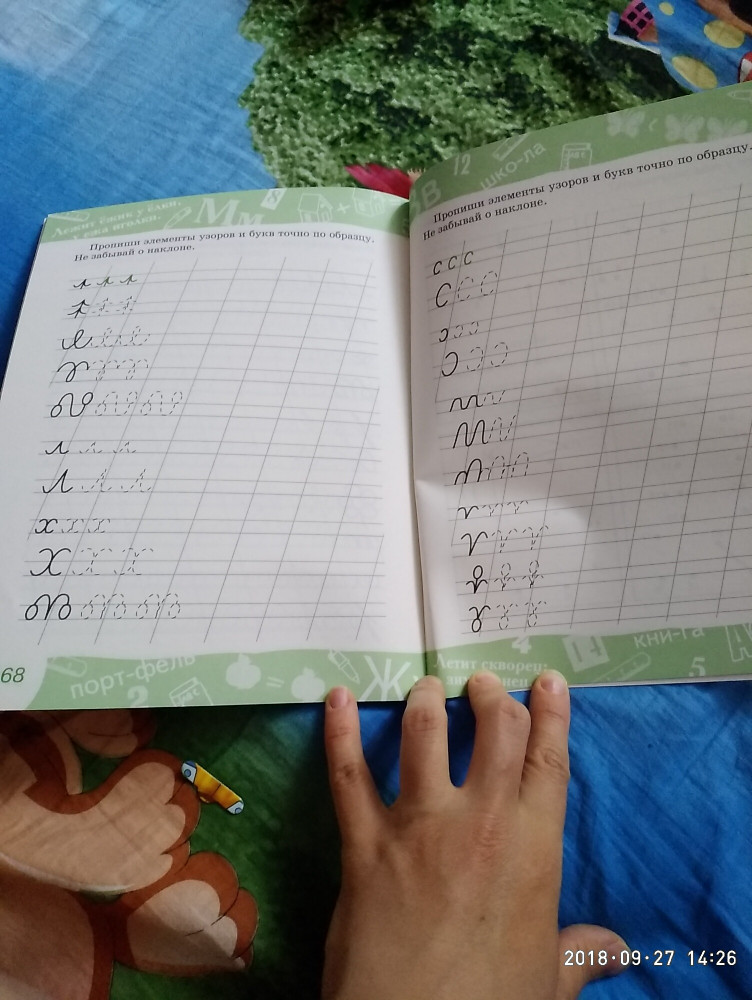 Лежит ёжик у ёлки,
у ежа иголки.
Мм
8
Пропиши элементы узоров и букв точно по образцу.
Не забывай о наклоне.
л л л
Л Л Л
х х х
Х Х Х
68
порт-фель
2
Ж
12
шко-ла
Пропиши элементы узоров и букв точно по образцу.
Не забывай о наклоне.
с с с
С С С
Летит скворец:
4
кни-га
5
2018·09·27 14:26